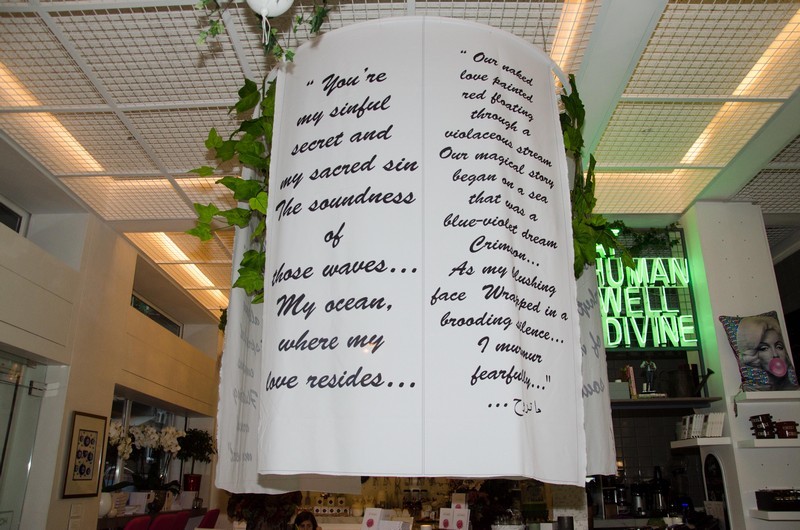 “ You're
my sinful
secret and
my sacred sin
The soundness
of
those waves...
My ocean,
where my
love resides...
“ Our naked
love painted
red floating
through a
violaceous stream
Our magical story
began on a sea
that was a
blue-violet dream
Crimson...
As my blushing
face Wrapped in a
brooding silence...
I murmur
fearfully..."
...
HUMAN
WELL
DIVINE